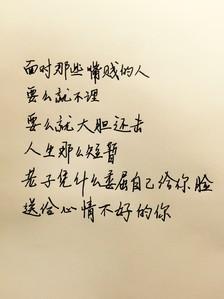 面对那些嘴贱的人
要么就不理
要么就大胆还去
人生那么短暂
老子凭什么委屈自己给你脸
送给心情不好的你